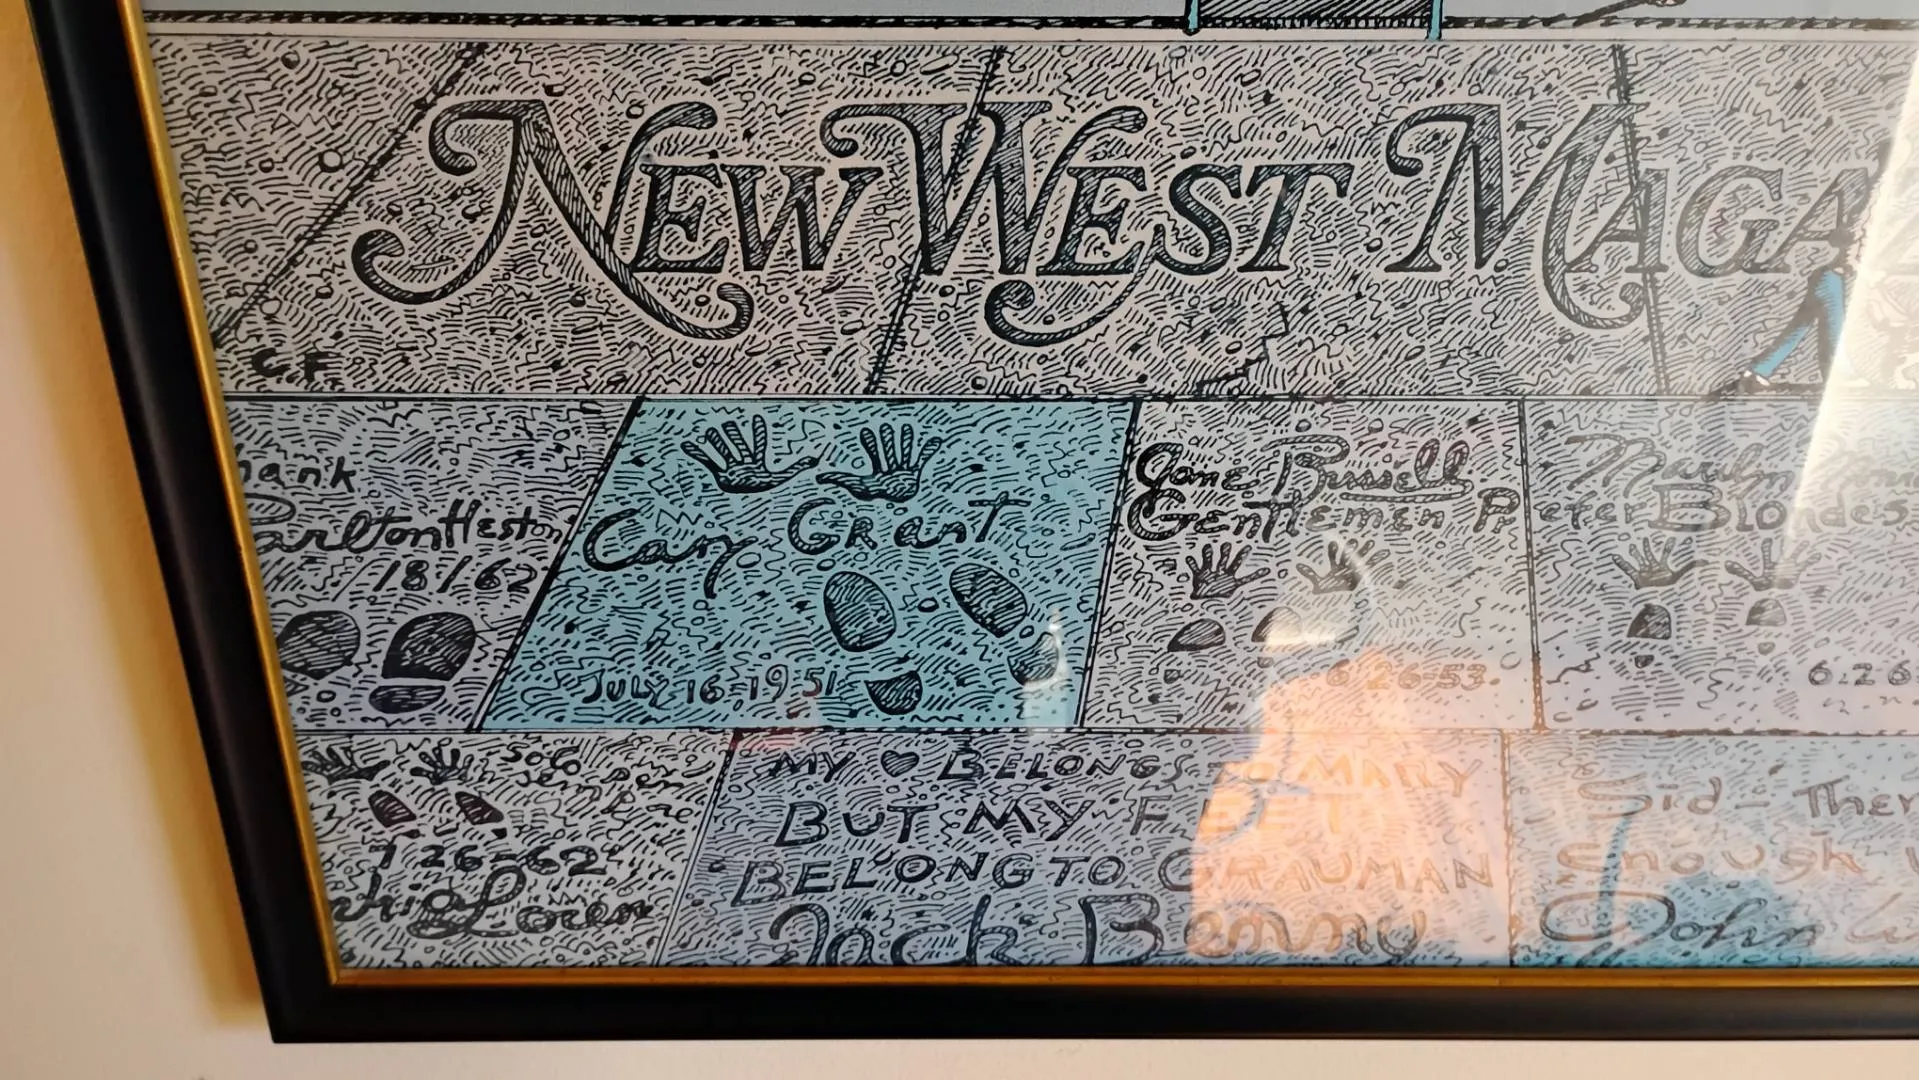 NEW WEST MAGA
C.F
hank
arltonHeston
18/62
Cary Grant
JULY 16-1951
Jane Russell
Gentlemen Pr
6-26-53
Marilyn
efer Blondes
6.26
1 26-62
Loren
MY ♥ BELONGS TO MARY
BUT MY FEET
BELONG TO GRAUMAN
Jack Benny
Sid - Ther
enough
John